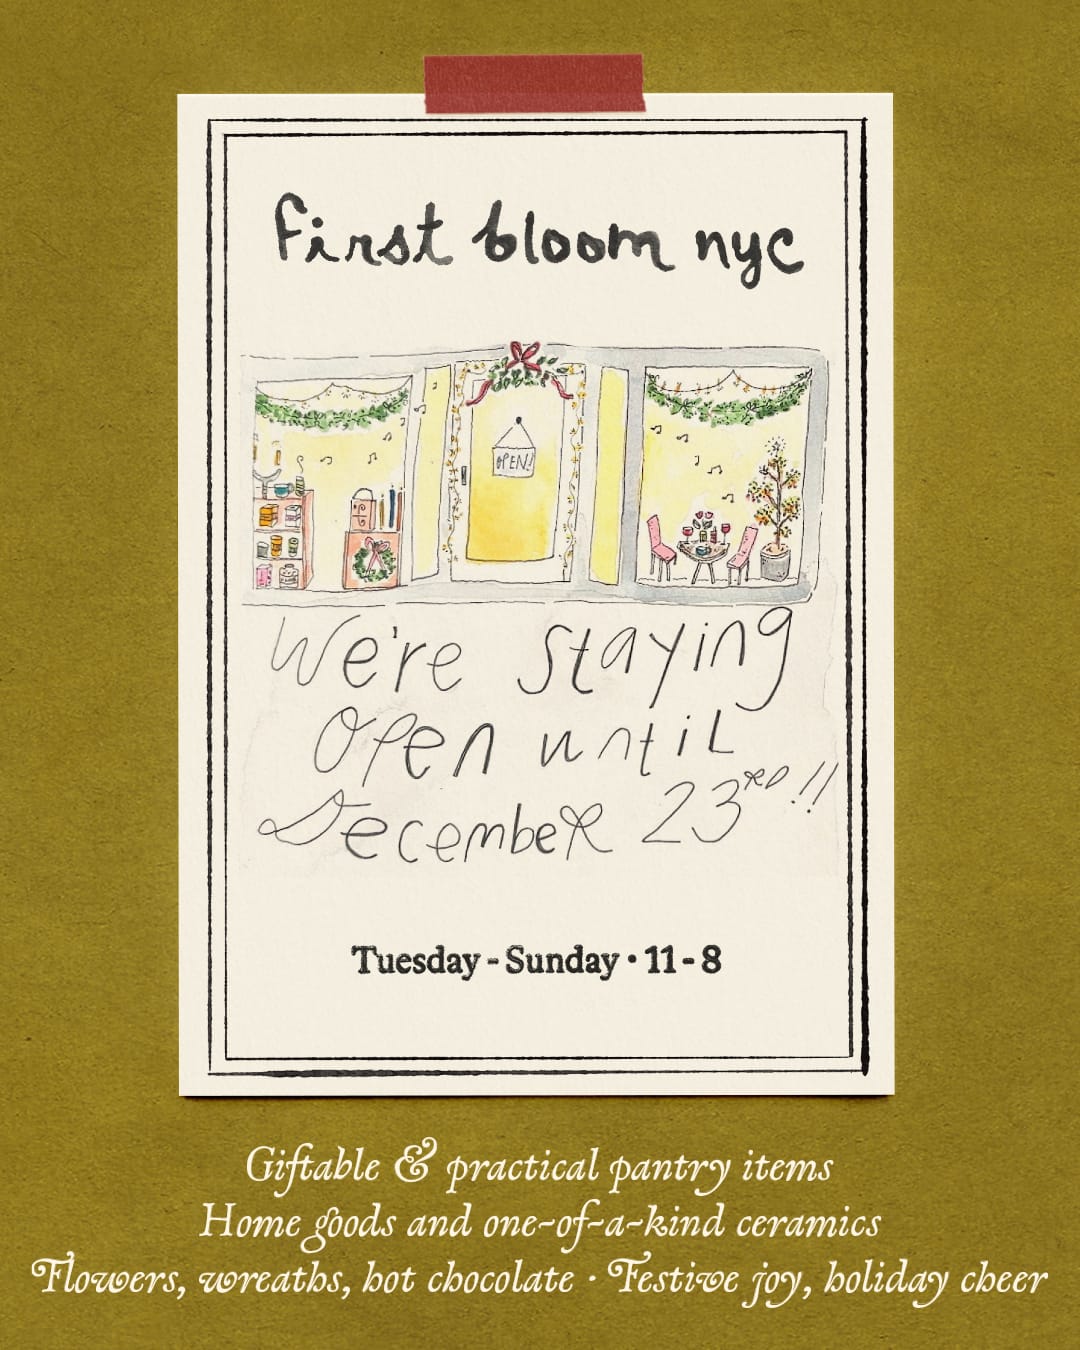 first bloom nyc
OPEN!
We're Staying
Open until
December 23RD!!
Tuesday - Sunday • 11 - 8
Giftable & practical pantry items
Home goods and one-of-a-kind ceramics
Flowers, wreaths, hot chocolate · Festive joy, holiday cheer